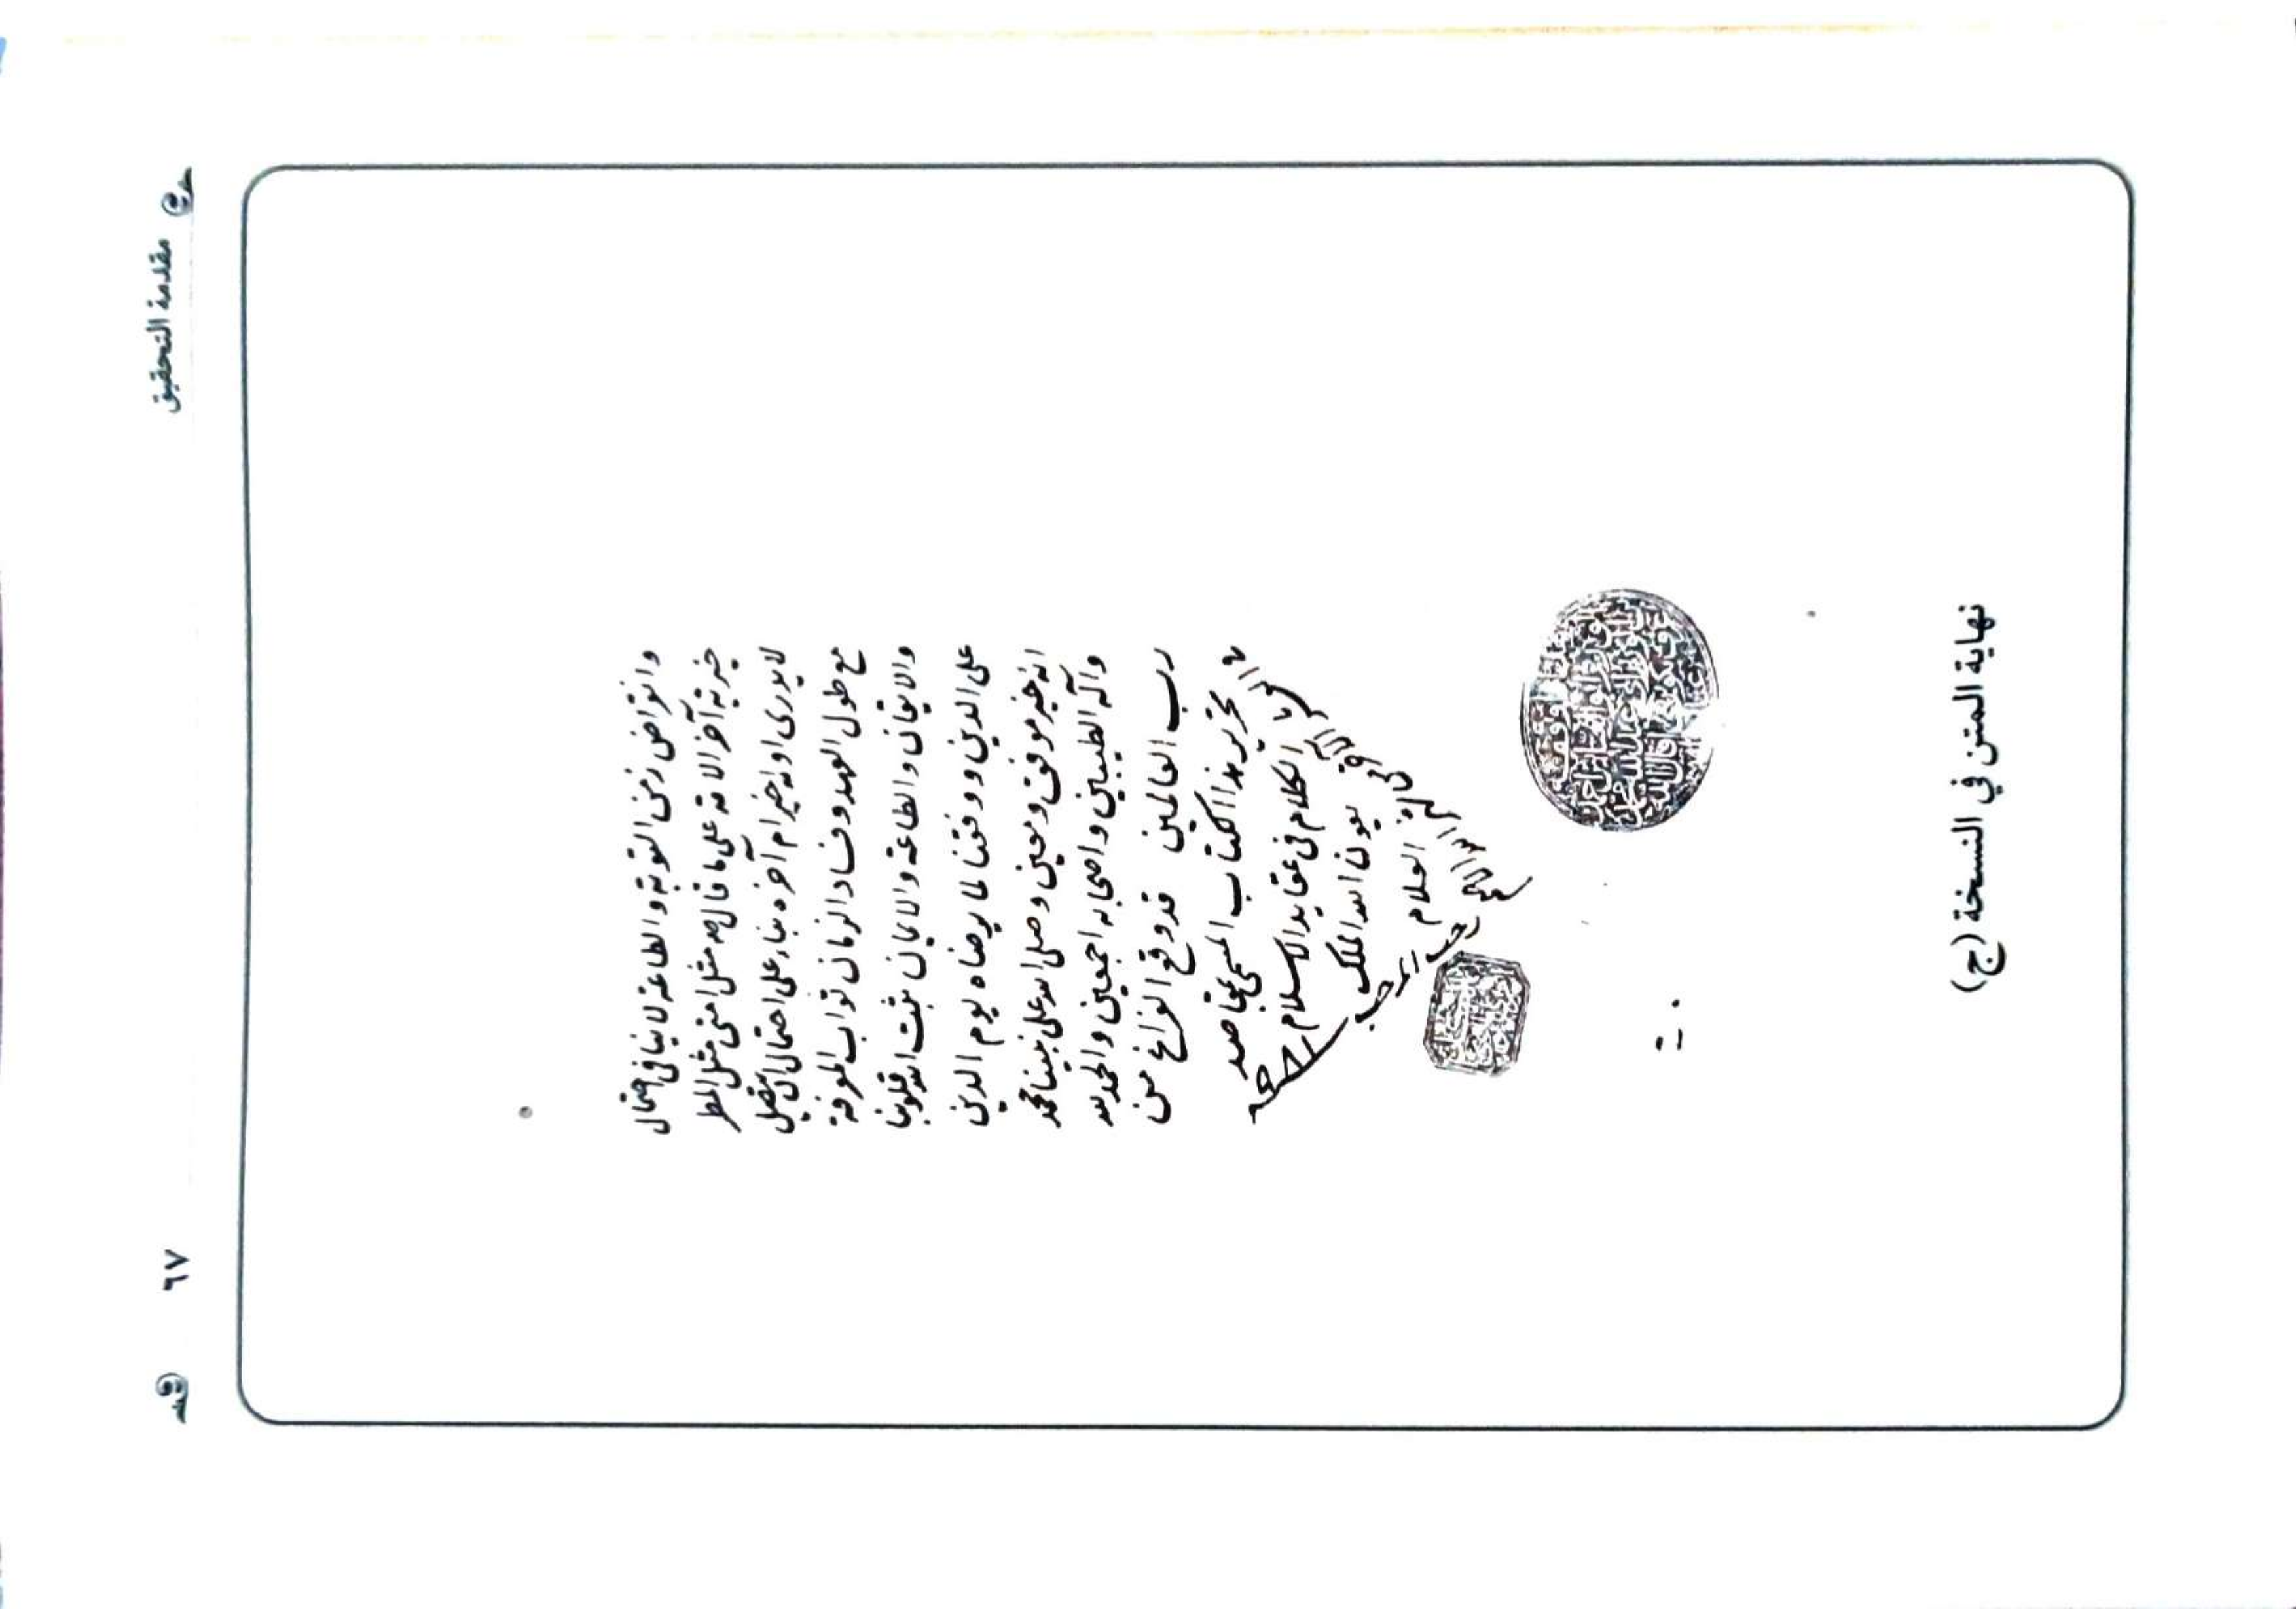 مقدمة التحقيق
٦٧
وانقراض زمن التوبة والطاعة لاينافى احتمال
خيرية آخر الامة على ما قال صم مثل امتى مثل المطر
لايدرى اوله خير ام آخره بناء على احتمال ان يتفضل
مع طول العهد وفساد الزمان ثواب المعرفة
والايقان والطاعة والايمان ثبت الله قلوبنا
على الدين ووفقنا لما يرضاه يوم الدين
انه خير موفق ومعين وصلى الله على نبينا محمد
وآله الطيبين واصحابه اجمعين والحمد لله
رب العالمين قد وقع الفراغ من
تحرير هذا الكتاب المسمى بمقاصد
الكلام فى عقايد الاسلام
بعون الله الملك
العلام
نهاية المتن في النسخة (ج)